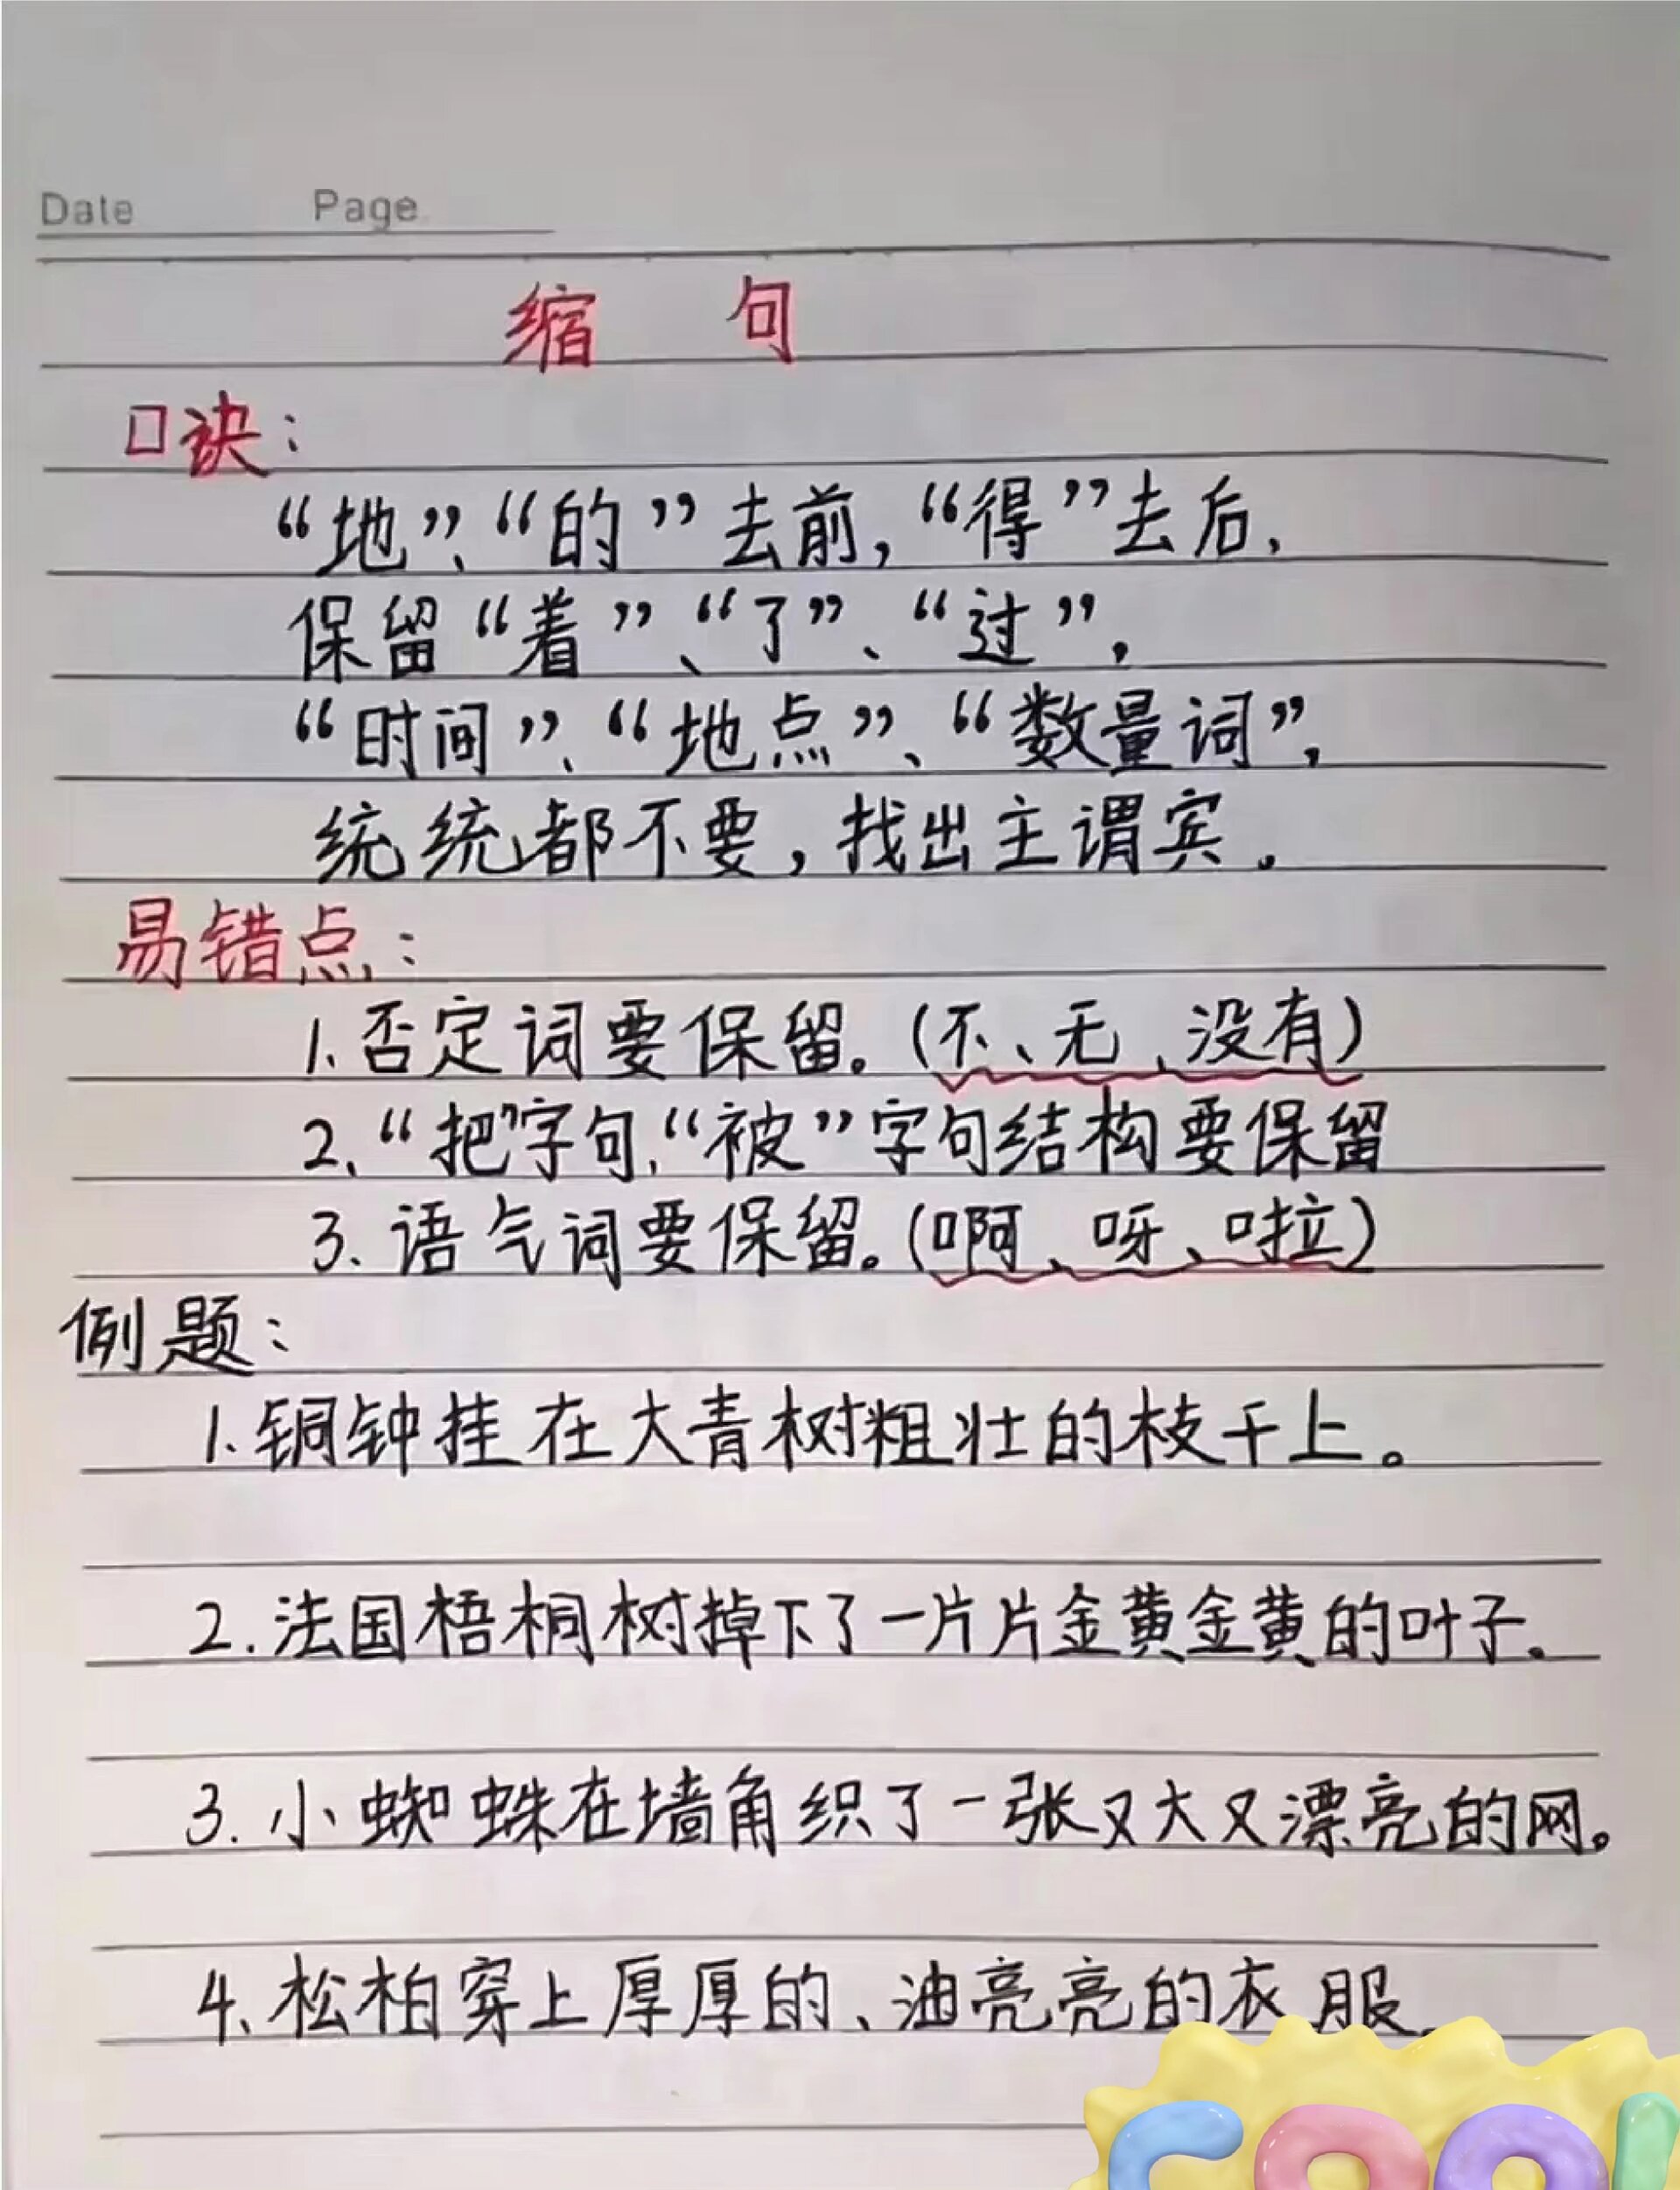 Date Page
缩 句
口诀：
“地”、“的”去前，“得”去后，
保留“着”、“了”、“过”，
“时间”、“地点”、“数量词”，
统统都不要，找出主谓宾。
易错点：
1.否定词要保留。(不、无、没有)
2、“把”字句，“被”字句结构要保留
3.语气词要保留。(啊、呀、啦)
例题：
1.铜钟挂在大青树粗壮的枝干上。
2.法国梧桐树掉下了一片片金黄金黄的叶子。
3.小蜘蛛在墙角织了一张又大又漂亮的网。
4、松柏穿上厚厚的、油亮亮的衣服.